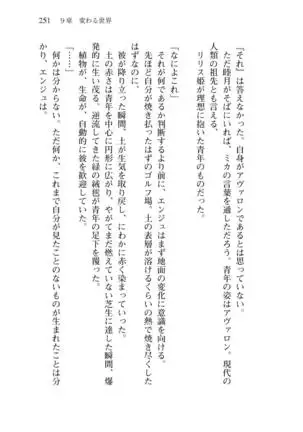 251　9章　変わる世界
「それ」は答えなかった。自身がアヴァロンであるとは思っていない。
ただ睦月がそばにいれば、ミカの言葉を通しただろう。青年の姿はアヴァロン。現代の
人類の祖先とも言える、
リリス姫が理想に抱いた青年のものだった。
「なによこれ」
それが何であるか判断するより前に、エンジュはまず地面の変化に意識を向ける。
先ほど自分が焼き払ったはずのゴルフ場。土の表層が溶けるくらいの熱で焼き尽くした
はずなのに。
彼が降り立った瞬間、土が生気を取り戻し、にわかに赤く染まっていった。
土の赤さは青年を中心に円形に広がり、やがてまだ燃えていない芝生に達した瞬間、爆
発的に生い茂る。逆流してきた緑の絨毯が青年の足下を覆った。
植物が、生命が、自動的に彼を歓迎していた。
「……」
何かは分からない。ただ何か、これまで自分が見たことのないものが生まれたことは分
かり、エンジュは。